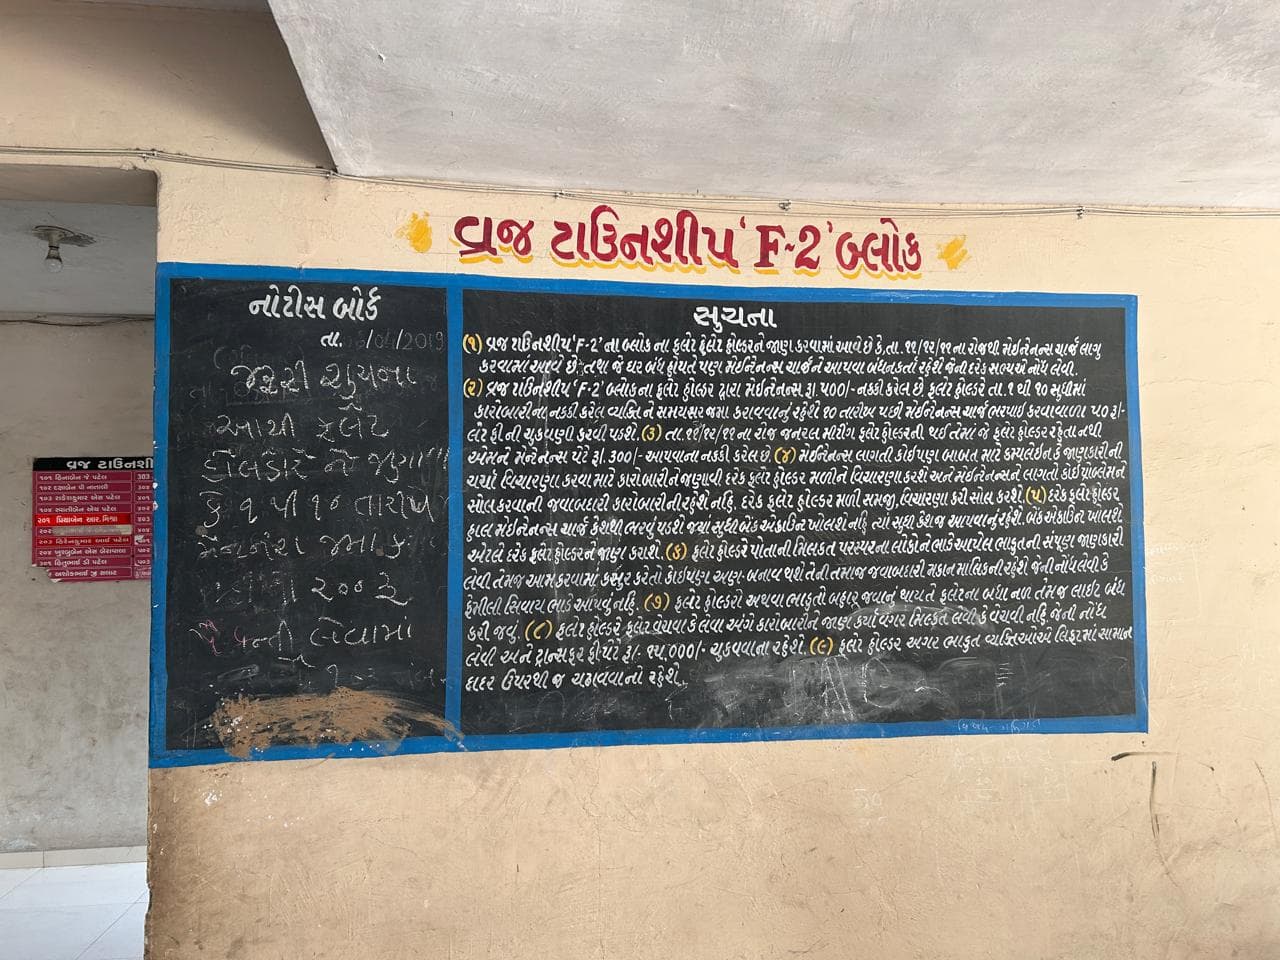 વ્રજ ટાઉનશીપ 'F-2' બ્લોક
નોટીસ બોર્ડ
તા. /04/2019
જરૂરી સુચના
આથી ફ્લેટ
હોલડારો ને જણા
કે ૧ થી ૧૦ તારીખ
જમા
૨૦૦ રૂ
લેવામાં
સુચના
(૧) વ્રજ ટાઉનશીપ 'F-2' ના બ્લોક ના ફ્લેટ હોલ્ડરને જાણ કરવામાં આવે છે કે, તા. ૧૧/૧૨/૧૧ ના રોજથી મેઈન્ટેનન્સ ચાર્જ લાગુ
કરવામાં આવે છે. તથા જે ઘર બંધ હોયતે પણ મેઈન્ટેનન્સ ચાર્જને આપવા બંધનકર્તા રહેશે જેની દરેક સભ્યએ નોંધ લેવી.
(૨) વ્રજ ટાઉનશીપ 'F-2' બ્લોકના ફ્લેટ હોલ્ડર દ્વારા મેઈન્ટેનન્સ રૂા ૫૦૦/- નક્કી કરેલ છે. ફ્લેટ હોલ્ડરે તા. ૧ થી ૧૦ સુધીમાં
કારોબારીના નક્કી કરેલ વ્યક્તિ ને સમયસર જમા કરાવવાનું રહેશે ૧૦ તારીખ પછી મેઈન્ટેનન્સ ચાર્જ ભરવાઈ કરવાવાળા ૫૦ રૂા/-
લેટ ફી ની ચુકવણી કરવી પડશે. (૩) તા. ૧૧/૧૨/૧૧ ના રોજ જનરલ મીટીંગ ફ્લેટ હોલ્ડરની થઈ તેમાં જે ફ્લેટ હોલ્ડર રહેતા નથી
એમને મેન્ટેનન્સ પેટે રૂા. ૩૦૦/- આપવાના નક્કી કરેલ છે. (૪) મેઈન્ટેનન્સ લાગતી કોઈપણ બાબત માટે કમ્પલેઈન કે જાણકારીની
ચર્ચા વિચારણા કરવા માટે કારોબારીને જણાવી દરેક ફ્લેટ હોલ્ડર મળીને વિચારણા કરશે અને મેઈન્ટેનન્સને લાગતો કોઈ પ્રોબ્લેમને
સોલ કરવાની જવાબદારી કારોબારીની રહેશે નહિ. દરેક ફ્લેટ હોલ્ડર મળી સમજી, વિચારણા કરી સોલ કરશે. (૫) દરેક ફ્લેટ હોલ્ડર
હાલ મેઈન્ટેનન્સ ચાર્જ કેશથી ભરવું પડશે જ્યાં સુધી બેંક એકાઉન્ટ ખોલશે નહિ ત્યાં સુધી કેશ જ આપવાનું રહેશે. બેંક એકાઉન્ટ ખોલશે.
એટલે દરેક ફ્લેટ હોલ્ડરને જાણ કરાશે. (૬) ફ્લેટ હોલ્ડરે પોતાની મિલકત પરસ્પરના લોકોને ભાડે આપેલ ભાડુતની સંપૂણ જાણકારી
લેવી તેમજ આમ કરવામાં કસુર કરેતો કોઈપણ અણ-બનાવ થશે તેની તમામ જવાબદારી મકાન માલિકની રહેશે જેની નોંધ લેવી કે
ફેમીલી સિવાય ભાડે આપવું નહિ. (૭) ફ્લેટ હોલ્ડરો અથવા ભાડુતો બહાર જવાનું થાય તો ફ્લેટના બધા નળ તેમજ લાઈટ બંધ
કરી જવું. (૮) ફ્લેટ હોલ્ડરે ફ્લેટ વેચવા કે લેવા અંગે કારોબારીને જાણ કર્યા વગર મિલ્કત લેવી કે વેચાવી નહિ. જેની નોંધ
લેવી અને ટ્રાન્સફર ફી પેટે રૂા/- ૧૫,૦૦૦/- ચુકવવાના રહેશે. (૯) ફ્લેટ હોલ્ડર અગર ભાડુત વ્યક્તિઓએ લિફ્ટમાં સામાન
દાદર ઉપરથી જ ચઢાવવાનો રહેશે.
વ્રજ ટાઉનશી
૧૦૧ હિનાબેન જે પટેલ 303
૧૦૨ દક્ષાબેન પી નાતાલી 308
૧૦૩ રાકેશકુમાર એસ પટેલ ૪૦૧
૧૦૪ સ્વાતીબેન એચ પટેલ ૪૦૨
૨૦૧ પ્રિયાબેન આર. મિશ્રા ૪૦૩
૨૦૨
૨૦૩ હિરેનકુમાર આઈ પટેલ
૨૦૪ ખુશ્બુબેન એસ બેરાવાળા ૫૦૨
૩૦૧ હિતુભાઈ ડી પટેલ ૫૦૩
અશોકભાઈ જી સલાટ